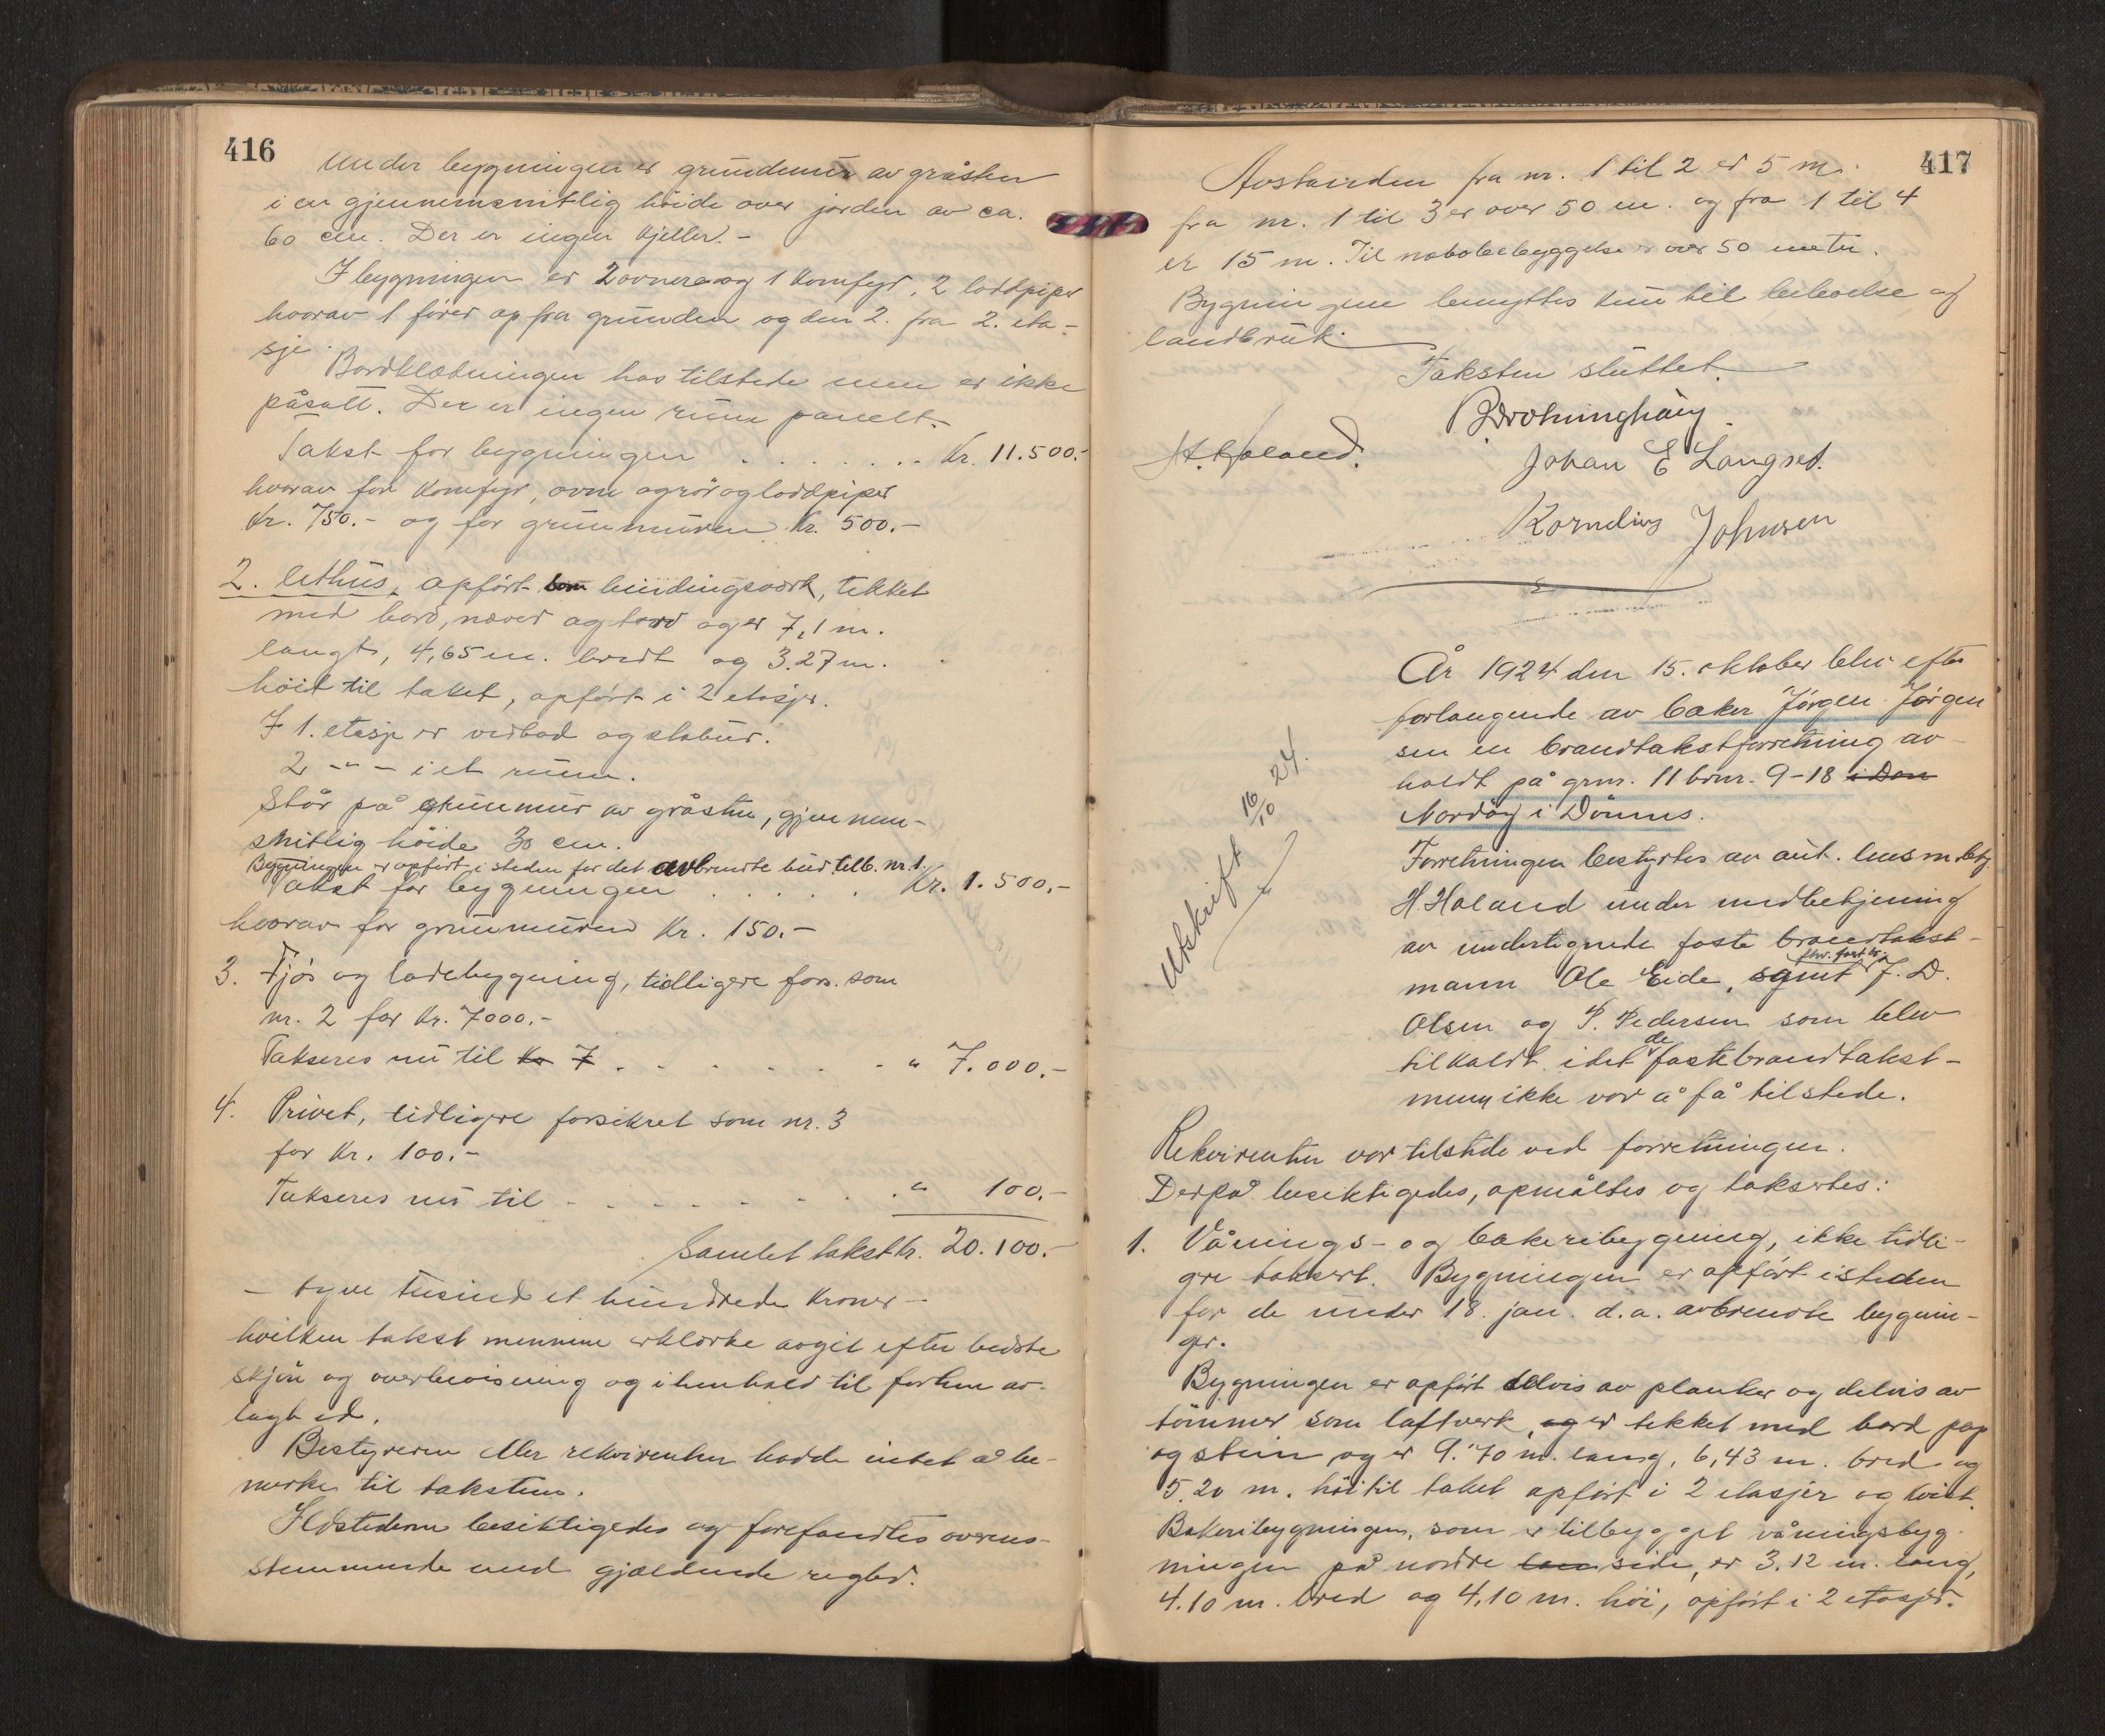 416
Under bygningen er grundmur av gråsten
i en gjennemsnitlig höide over jorden av ca.
60 cm. Der er ingen kjeller.-
I bygningen er 2 ovnere og 1 komfyr, 2 loddpiper
hvorav 1 förer op fra grunden og den 2. fra 2. eta-
sje.
Bordklædningen has tilstede men er ikke
påsatt. Der er ingen rum panelt.-
Takst for bygningen . . . . . . . Kr. 11.500.-
hvorav for komfyr, ovne og rör og loddpiper
Kr. 750.- og for grunmuren Kr. 500.-
2. Uthus, opfört bindingsverk, tekket
med bord, næver og torv og er 7,1 m.
langt, 4,65 m. bredt og 3.27 m.
höit til taket, opfört i 2 etasjer.
I 1. etasje er vedbod og stabur.
2 -"- i et rum.
Står på grunmur av gråsten, gjennem-
snitlig höide 30 cm.
Bygningen er opfört i steden for det avbrendte under tilb. nr. 1.
Takst for bygningen . . . . . Kr. 1.500,-
hvorav for grunmuren Kr. 150.-
3. Fjös og ladebygning, tidligere fors. som
nr. 2 for Kr. 7000.-
Takseres nu til Kr 7 . . . . . . . " 7.000.-
4. Privet, tidligere forsikret som nr. 3
for Kr. 100.-
Takseres nu til - . . . . . . . " 100.-
Samlet takst kr. 20.100.-
- tyve tusind et hundrede kroner -
hvilken takst mennene erklærte avgit efter bedste
skjön og overbevisning og i henhold til forhen av-
lagt ed.
Bestyreren eller rekvirenten hadde intet å be-
merke til taksten.
Ildstederne besiktigedes og forefandtes overens-
stemmende med gjældende regler.
417
Avstanden fra nr. 1 til 2 er 5 m.
fra nr. 1 til 3 er over 50 m. og fra 1 til 4
er 15 m. Til nabobebyggelse er over 50 meter.
Bygningene benyttes kun til beboelse og
landbruk.
Taksten sluttet.
B. Dronninghaug.
H. Haland. Johan E Langset.
Kornelius Johnsen
År 1924 den 15. oktober blev efter
forlangende av baker Jörgen Jörgen
sen en brandtakstforretning av-
holdt på grnr. 11 brnr. 9-18 i Døn
Nordöy i Dönnes.
Forretningen bestyrtes av aut. lensm.betj.
H. Haland under medbetjening
av undertegnede faste brandtakst-
mann Ole Eide, samt J. D.
Olsen og P. Pedersen som blev
tilkaldt idet de faste brandtakst-
menn ikke var å få tilstede.
Utskrift 16/10 24.
Rekvirenten var tilstede ved forretningen.
Derpå besiktigedes, opmåltes og taksertes:
1. Vånings- og bakeribygning, ikke tidli-
gre taksert. Bygningen er opfört isteden
for de under 18. jan. d.a. avbrendte bygnin-
ger.
Bygningen er opfört delvis av planker og delvis av
tömmer som laftverk, og er tekket med bord pap
og stein og er 9.70 m. lang, 6,43 m. bred og
5.20 m. höi til taket opfört i 2 etasjer og kvist.
Bakeribygningen, som er tilbygget våningsbyg-
ningen på nordre side, er 3.12 m. lang,
4.10 m. bred og 4,10 m. höi, opfört i 2 etasjer.